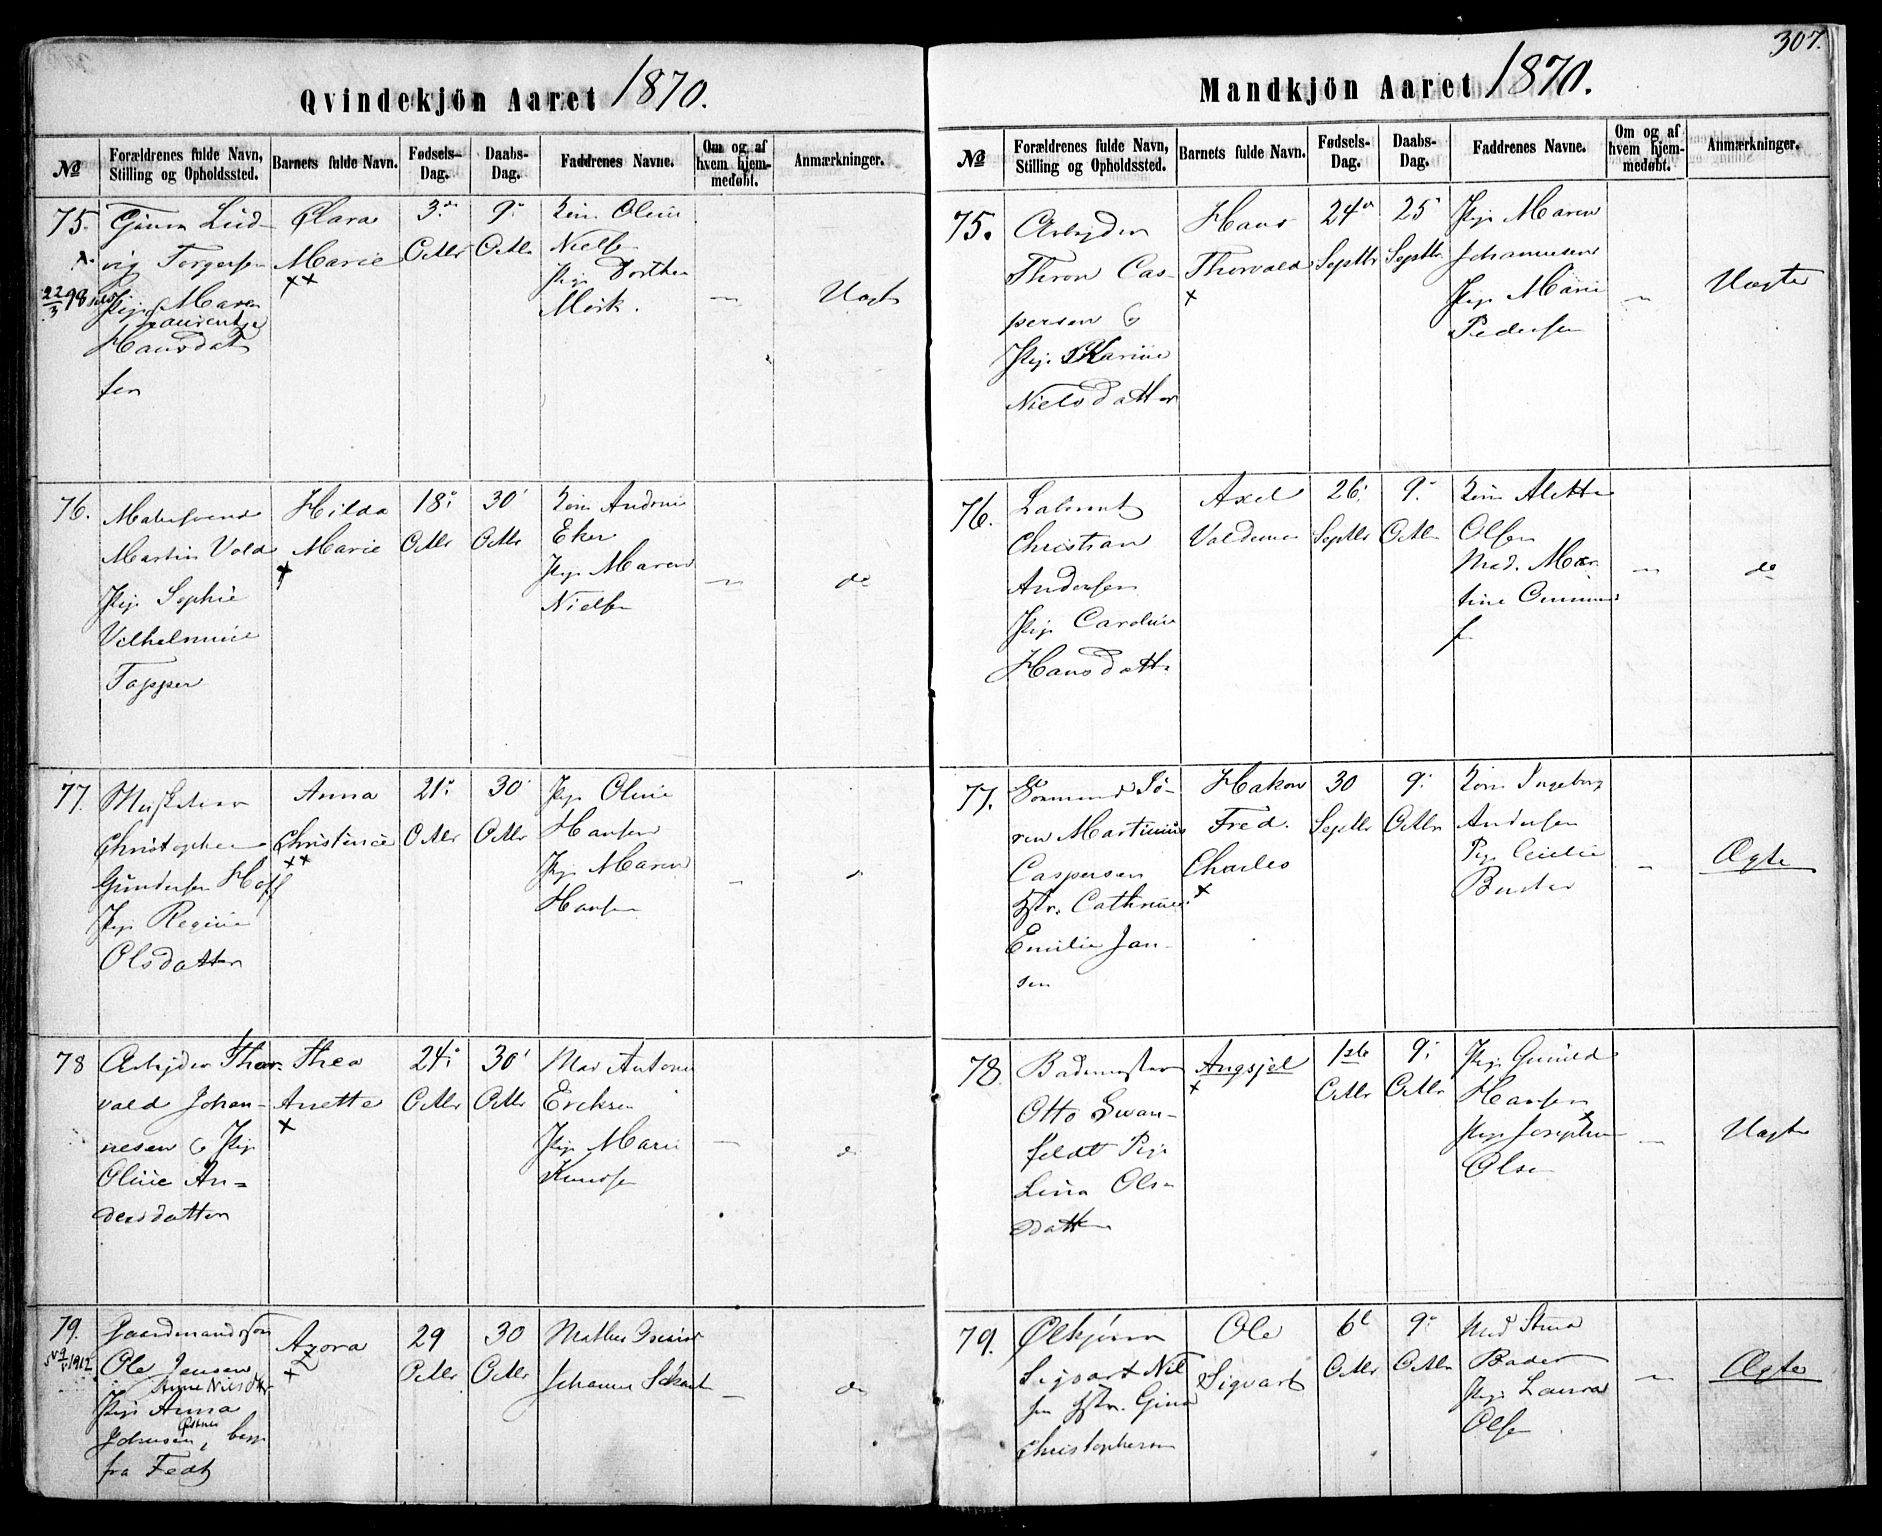 307.
Qvindekjön Aaret 1870.
№
Forældrenes fulde Navn,
Stilling og Opholdssted.
Barnets fulde Navn.
Fødsels-
Dag.
Daabs-
Dag.
Faddrenes Navne.
Om og af
hvem hjem-
medøbt.
Anmærkninger.
75.
22/3 98
Lud-
vig Torgersen
Pige Maren
Laurentze
Hansdat
ter
Clara
Marie
××
3.
Octbr
9
Octbr
Kone Oline
Nielsen
Pige Dorthea
Mörk.
—
Uægte
76.
Malersvend
Martin Vold
Pige Sophie
Vilhelmine
Topper
Hilda
Marie
×
18
Octbr
30
Octbr
Kone Andrine
Eker
Pige Maren
Nielsen
—
do
77.
Musketeer
Christopher
Gundersen Hoff
Pige Regine
Olsdatter
Anna
Christence
××
21
Octbr
30
Octbr
Pige Oline
Hansen
Pige Maren
Hansen
—
78
Arbejder Thor-
vald Johan-
nesen & Pige
Oline An-
dersdatter
Thea
Anette
×
24
Octbr
30
Octbr
Mad Antone
Ericksen
Pige Marie
Knudsen
—
do
79.
9/5 1912
Gaardmandssøn
Ole Jensen
Anne Nielsdtr
Pige Anna
Johnsen,
fra Fedt
Azora
×
29
Octbr
30
Octbr
Johanne
—
do
Mandkjön Aaret 1870.
№
Forældrenes fulde Navn,
Stilling og Opholdssted.
Barnets fulde Navn.
Fødsels-
Dag.
Daabs-
Dag.
Faddrenes Navne.
Om og af
hvem hjem-
medøbt.
Anmærkninger.
75.
Arbejder
Thron Cas-
persen &
Pige Karine
Nielsdatter
Hans
Thorvald
×
24
Septbr
25
Septbr
Pige Maren
Johannesen
Pige Marie
Pedersen
—
Uægte
76.
Christian
Andersen
Pige Caroline
Hansdatter
Axel
Valdemar
26
Septbr
9
Octbr
Kone Alette
Olsen
Mad. Mar-
tine
—
do
77.
Formand Sö-
ren Martinius
Caspersen
Hstr. Cathrine
Emilie Jan-
sen
Hakon
Fred.
Charles
×
30
Septbr
9
Octbr
Kone Ingeborg
Andersen
Pige Cicilie
—
Ægte
78.
Bademester
Otto Swan-
feldt Pige
Lina Ols-
datter
Angsjel
×
1ste
Octbr
9
Octbr
Pige Gunild
Hansen
Pige Josephine
Olsen
—
Uægte
79.
Ølkjører
Sigvart Niel
sen Hstr. Gina
Christophersen
Ole
Sigvart
6
Octbr
9
Octbr
Mad Stina
Bader
Pige Laura
Olsen
—
Ægte